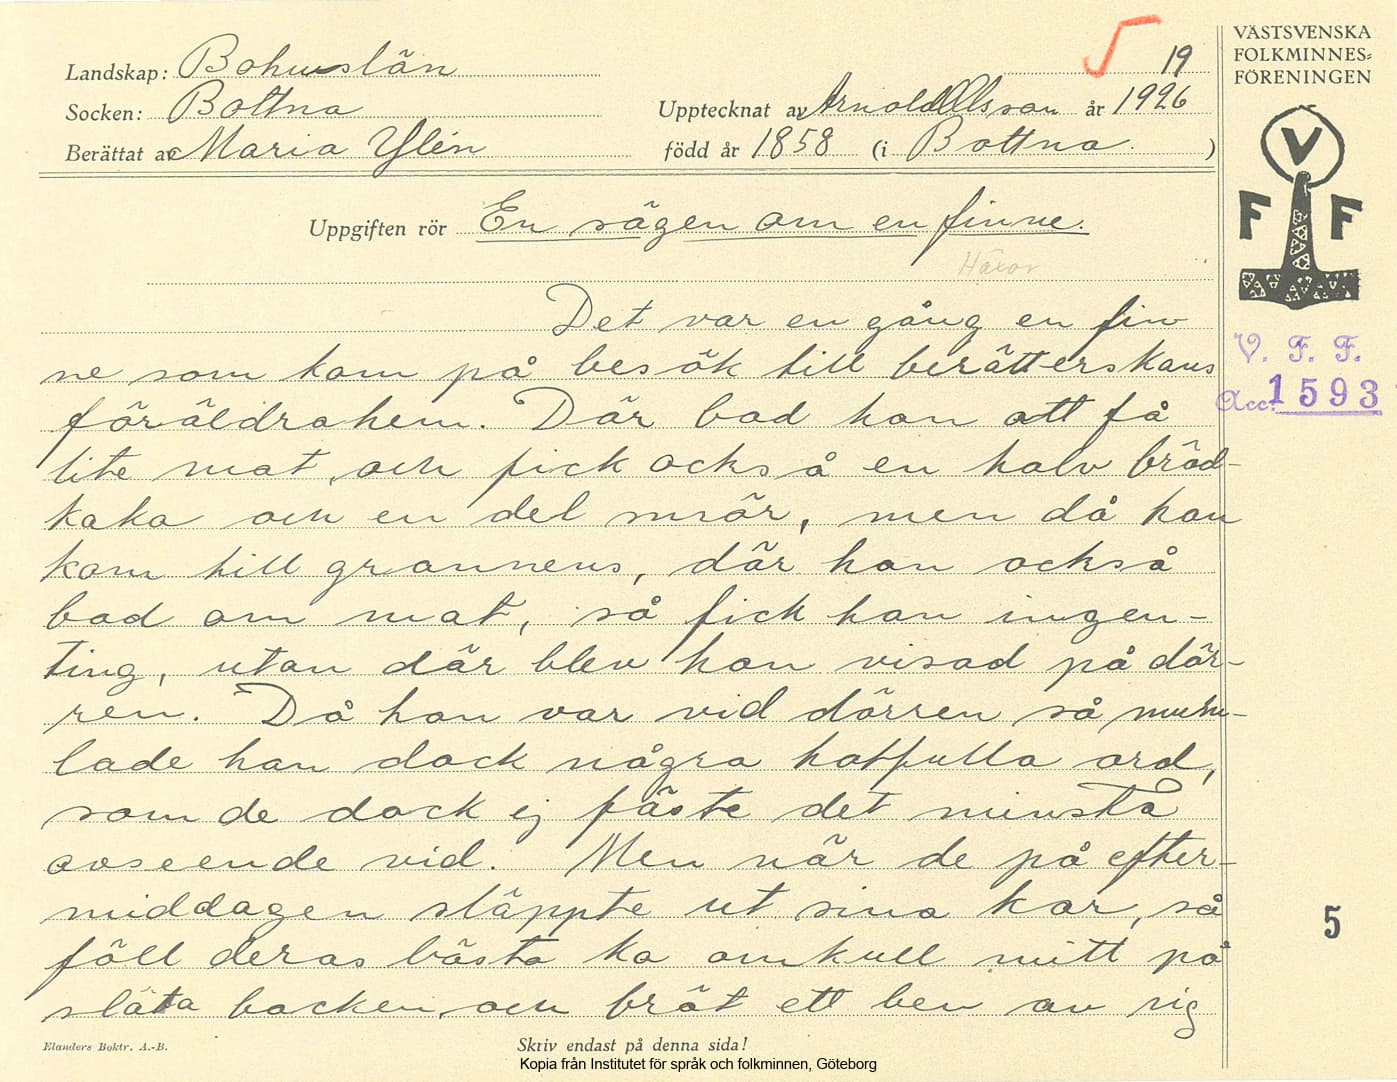 Landskap: Bohuslän
Socken: Bottna
Berättat av Maria Ylén
19
Upptecknat av Arnold Olsson år 1926
född år 1858 (i Bottna.)
VÄSTSVENSKA
FOLKMINNES=
FÖRENINGEN
V
F F
V. F. F.
Acc. 1593
Uppgiften rör En sägen om en finne.
Häxor
Det var en gång en fin
ne som kom på besök till berätterskans
föräldrahem. Där bad han att få
lite mat, och fick också en halv bröd-
kaka och en del smör, men då han
kom till grannens, där han också
bad om mat, så fick han ingen-
ting, utan där blev han visad på dör-
ren. Då han var vid dörren så mum-
lade han dock några hatfulla ord,
som de dock ej fäste det minsta
avseende vid. Men när de på efter-
middagen släppte ut sina kor, så
föll deras bästa ko omkull mitt på
släta backen och bröt ett ben av sig
5
Elanders Boktr. A.-B.
Skriv endast på denna sida!
Kopia från Institutet för språk och folkminnen, Göteborg